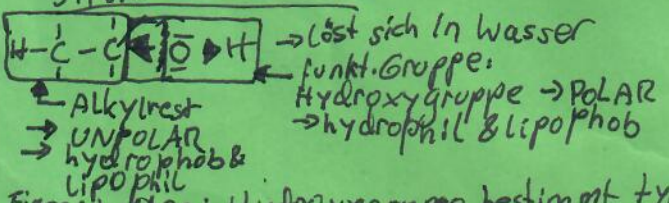 H-C-C O H → Löst sich in Wasser
funkt. Gruppe:
Hydroxygruppe → POLAR
→ hydrophil & lipophob
Alkylrest
→ UNPOLAR
→ hydrophob &
lipophil
bestimmt